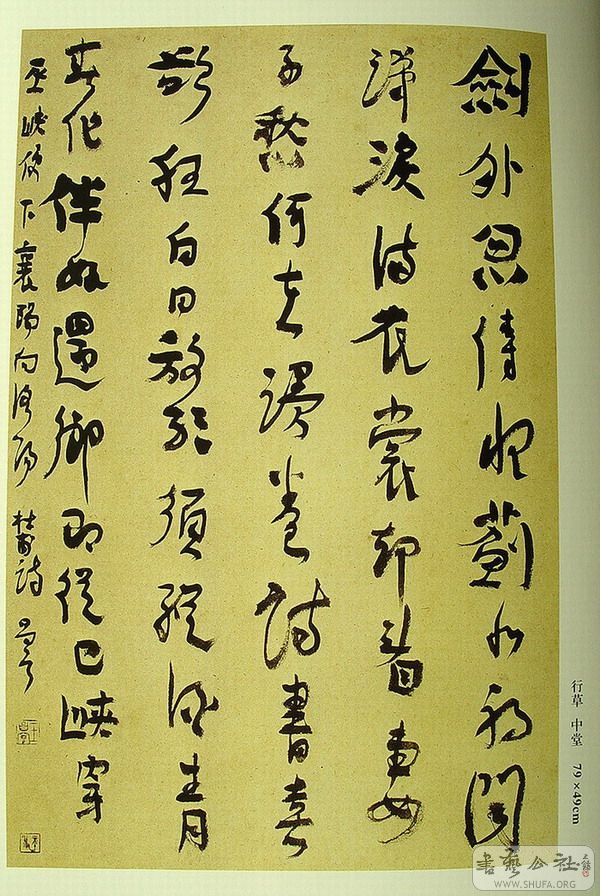 劍外忽傳收薊北初聞
涕淚滿衣裳却看妻
子愁何在漫卷詩書喜
欲狂白日放歌須縱酒青
春作伴好還鄉即從巴峽穿
巫峽便下襄陽向洛陽 杜甫詩
行草 中堂 79×49cm
書藝公社
WWW.SHUFA.ORG